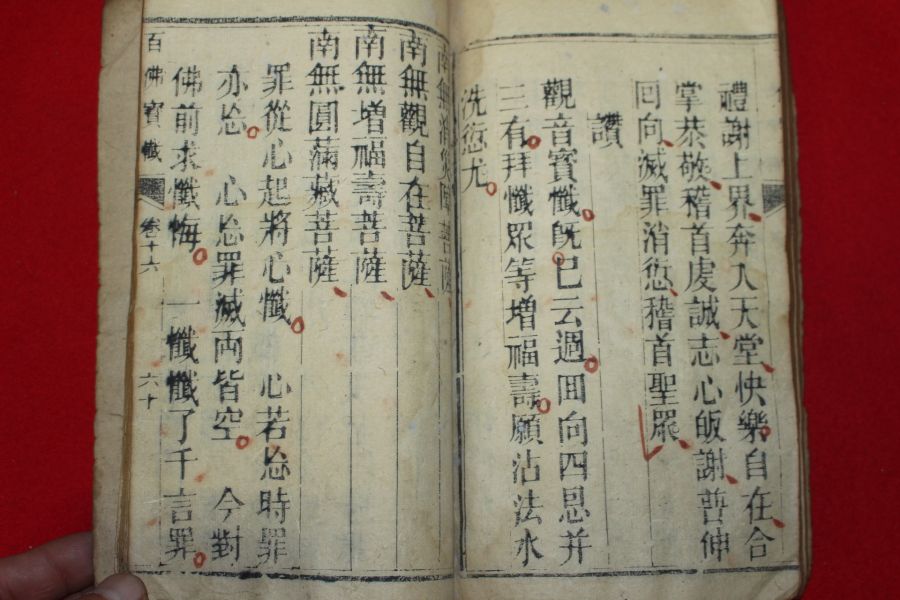 禮謝上界奔入天堂快樂自在合
掌恭敬稽首虔誠志心皈謝普伸
囘向滅罪消愆稽首聖眾
讚
觀音寳懺既已云週囬向四恩并
三有拜懺眾等增福壽願沾法水
洗愆尤
南無消災障菩薩
南無觀自在菩薩
南無増福壽菩薩
南無圓滿藏菩薩
罪從心起將心懺 心若忘時罪
亦忘 心忘罪滅両皆空 今對
佛前求懺悔 一懺懺了千言罪
百佛寳懺 卷十六 六十